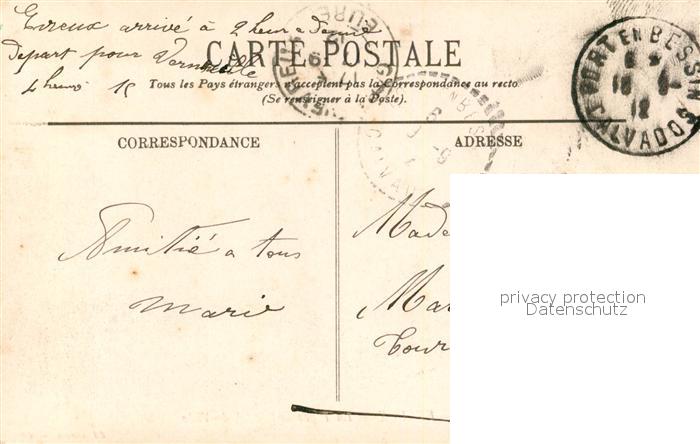 Evreux arrivé à 2 heur e demie
Départ pour Verneuille
4 heures 15
CARTE POSTALE
Tous les Pays étrangers n'acceptent pas la Correspondance au recto
(Se renseigner à la Poste).
PORT EN BESSIN
CALVADOS
CORRESPONDANCE
ADRESSE
Amitié a tous
Marie
Made
Mar
Cour
privacy protection
Datenschutz